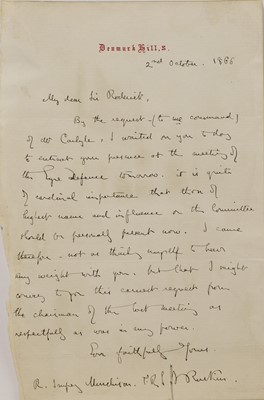 Denmark Hill, S.
2nd October. 1866
My dear Sir Roderick,
By the request (to me command)
of Mr Carlyle, I waited on you today
to entreat your presence at the meeting of
the Eyre defence tomorrow. it is quite
of cardinal importance that those of
highest name and influence on the Committee
should be personally present now. I came
therefore - not as thinking myself to have
any weight with you. but that I might
convey to you this earnest request from
the chairman of the last meeting as
respectfully as was in my power.
Ever faithfully Yours
R. Impey Murchison. J Ruskin.